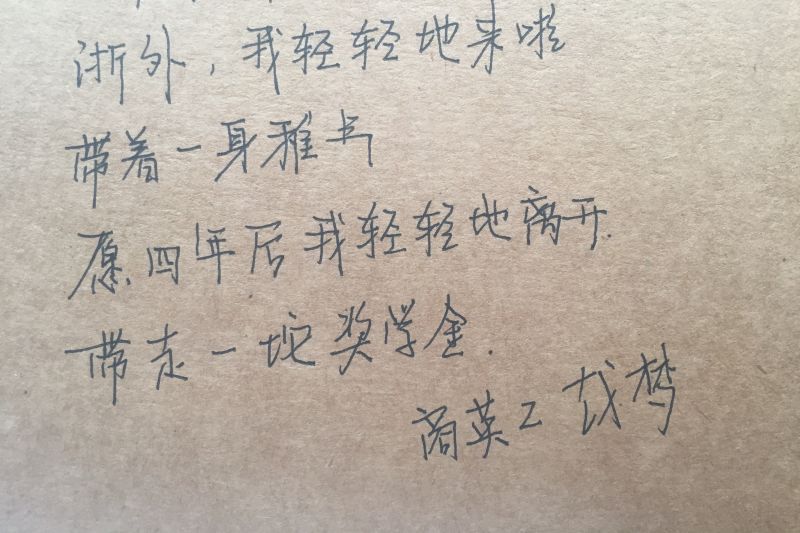 浙外,我轻轻地来啦
带着一身雅卢
愿四年后我轻轻地离开.
带走一坨奖学金.
商英2 钱梦